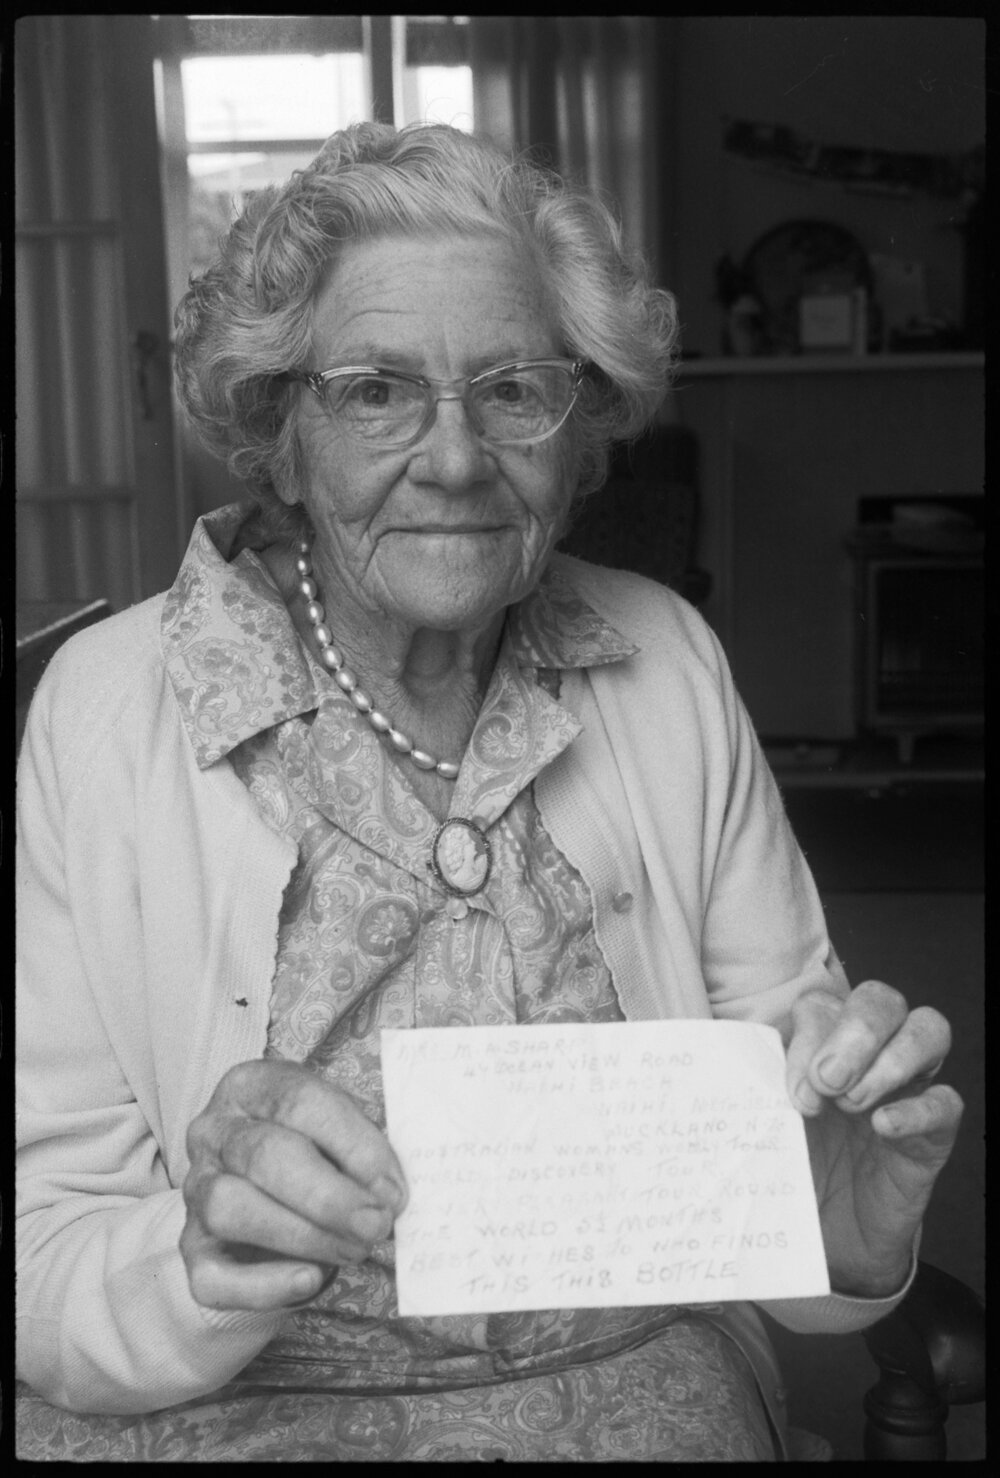 MRS M A SHARP
44 OCEAN VIEW ROAD
WAIHI BEACH
WAIHI,
AUCKLAND N.Z.
AUSTRALIAN WOMANS WEEKLY TOUR
WORLD DISCOVERY TOUR
A VERY PLEASANT TOUR ROUND
THE WORLD 5½ MONTHS
BEST WISHES TO WHO FINDS
THIS THIS BOTTLE